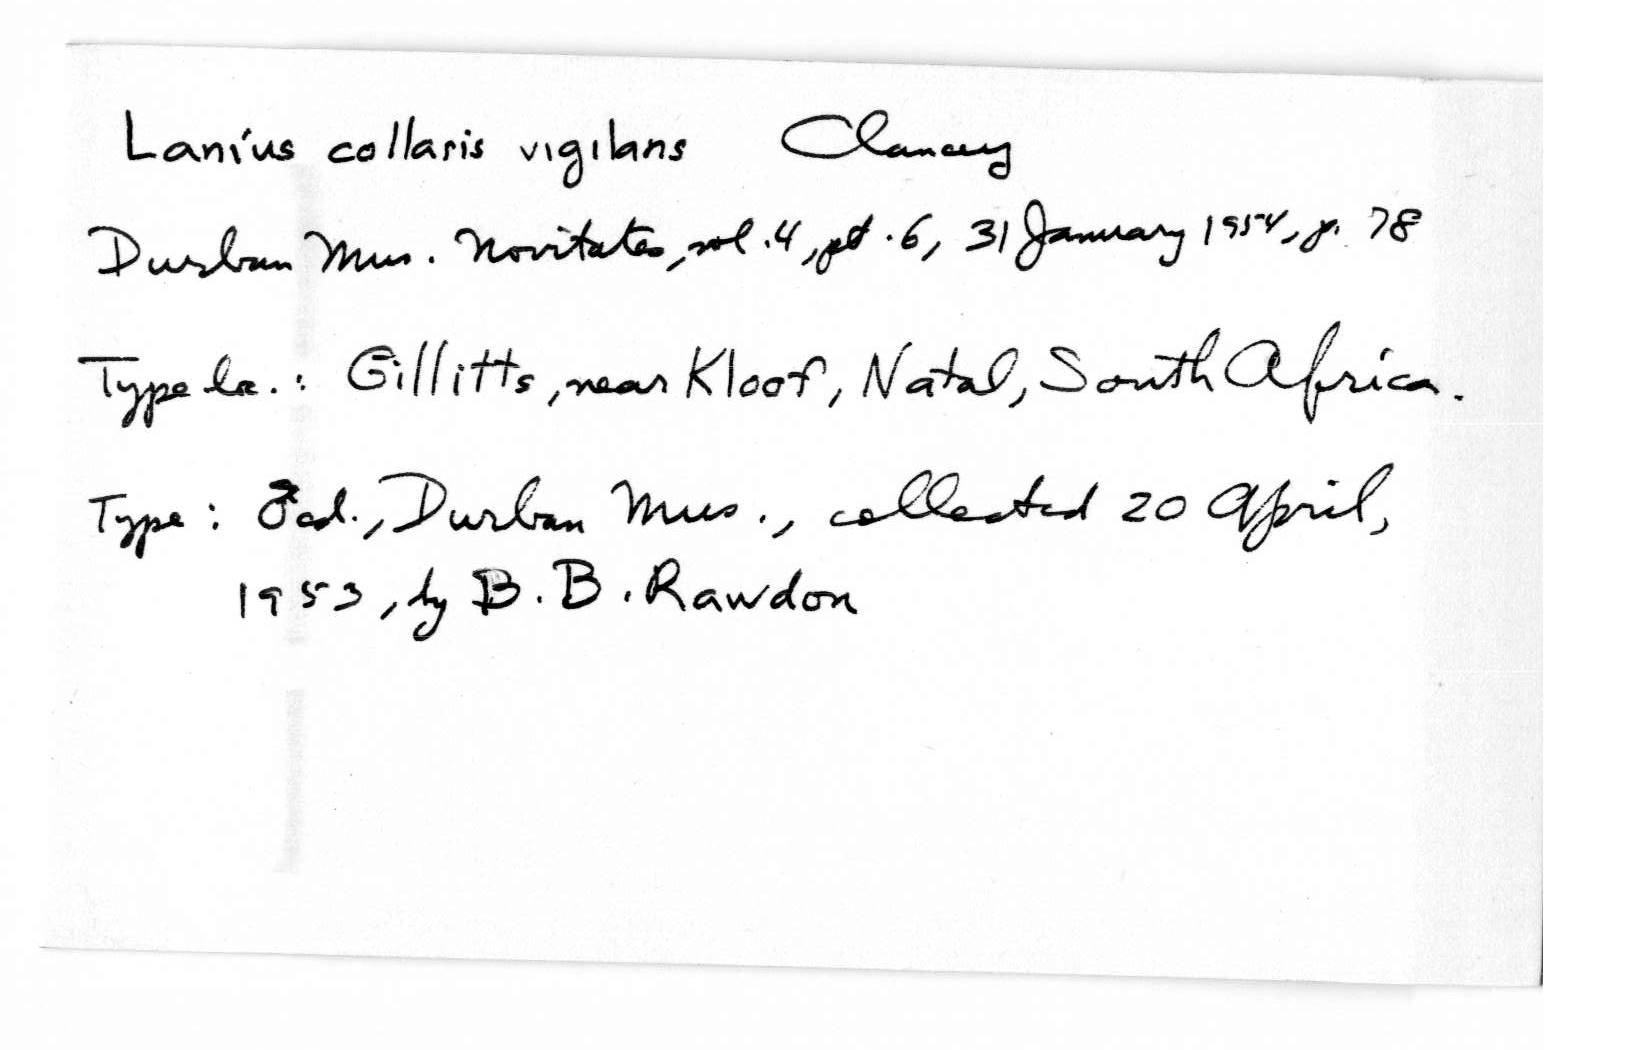 Lanius collaris vigilans Clancey
Durban Mus. Novitates, vol. 4, pt. 6, 31 January 1954, p. 78
Type loc.: Gillitts, near Kloof, Natal, South Africa.
Type: ♂ ad., Durban Mus., collected 20 April,
1953, by B. B. Rawdon